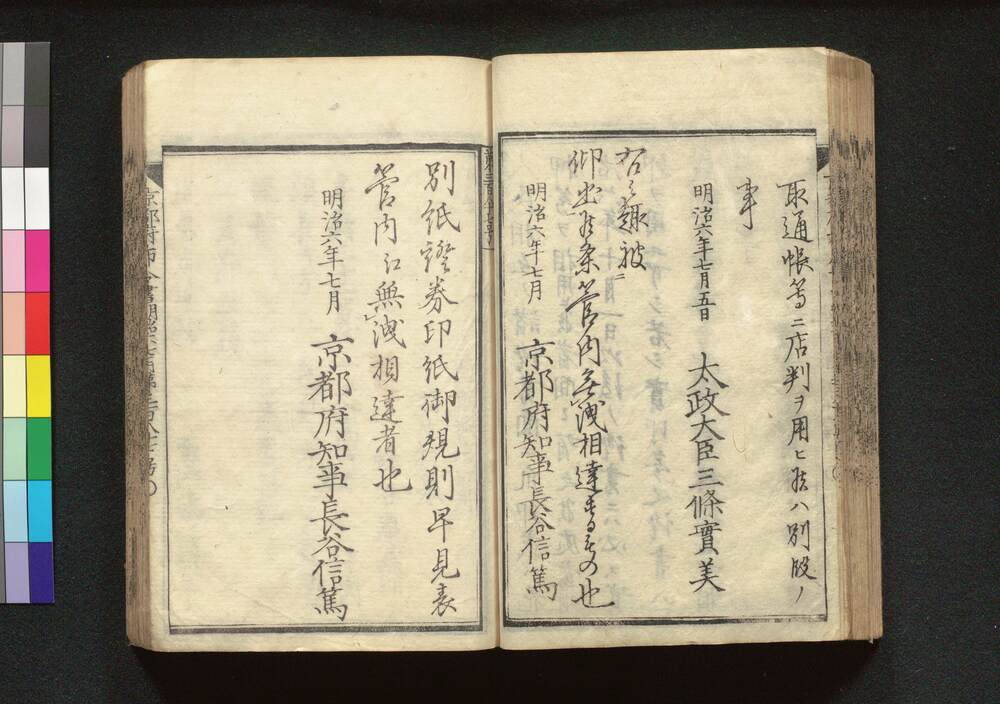 取通帳等ニ店判ヲ用ヒ候ハ別段ノ
事
明治六年七月五日　太政大臣三條實美
右之趣被
仰出候条管内無洩相達するもの也
明治六年七月　京都府知事長谷信篤
別紙證券印紙御規則早見表
管内江無洩相達者也
明治六年七月　京都府知事長谷信篤